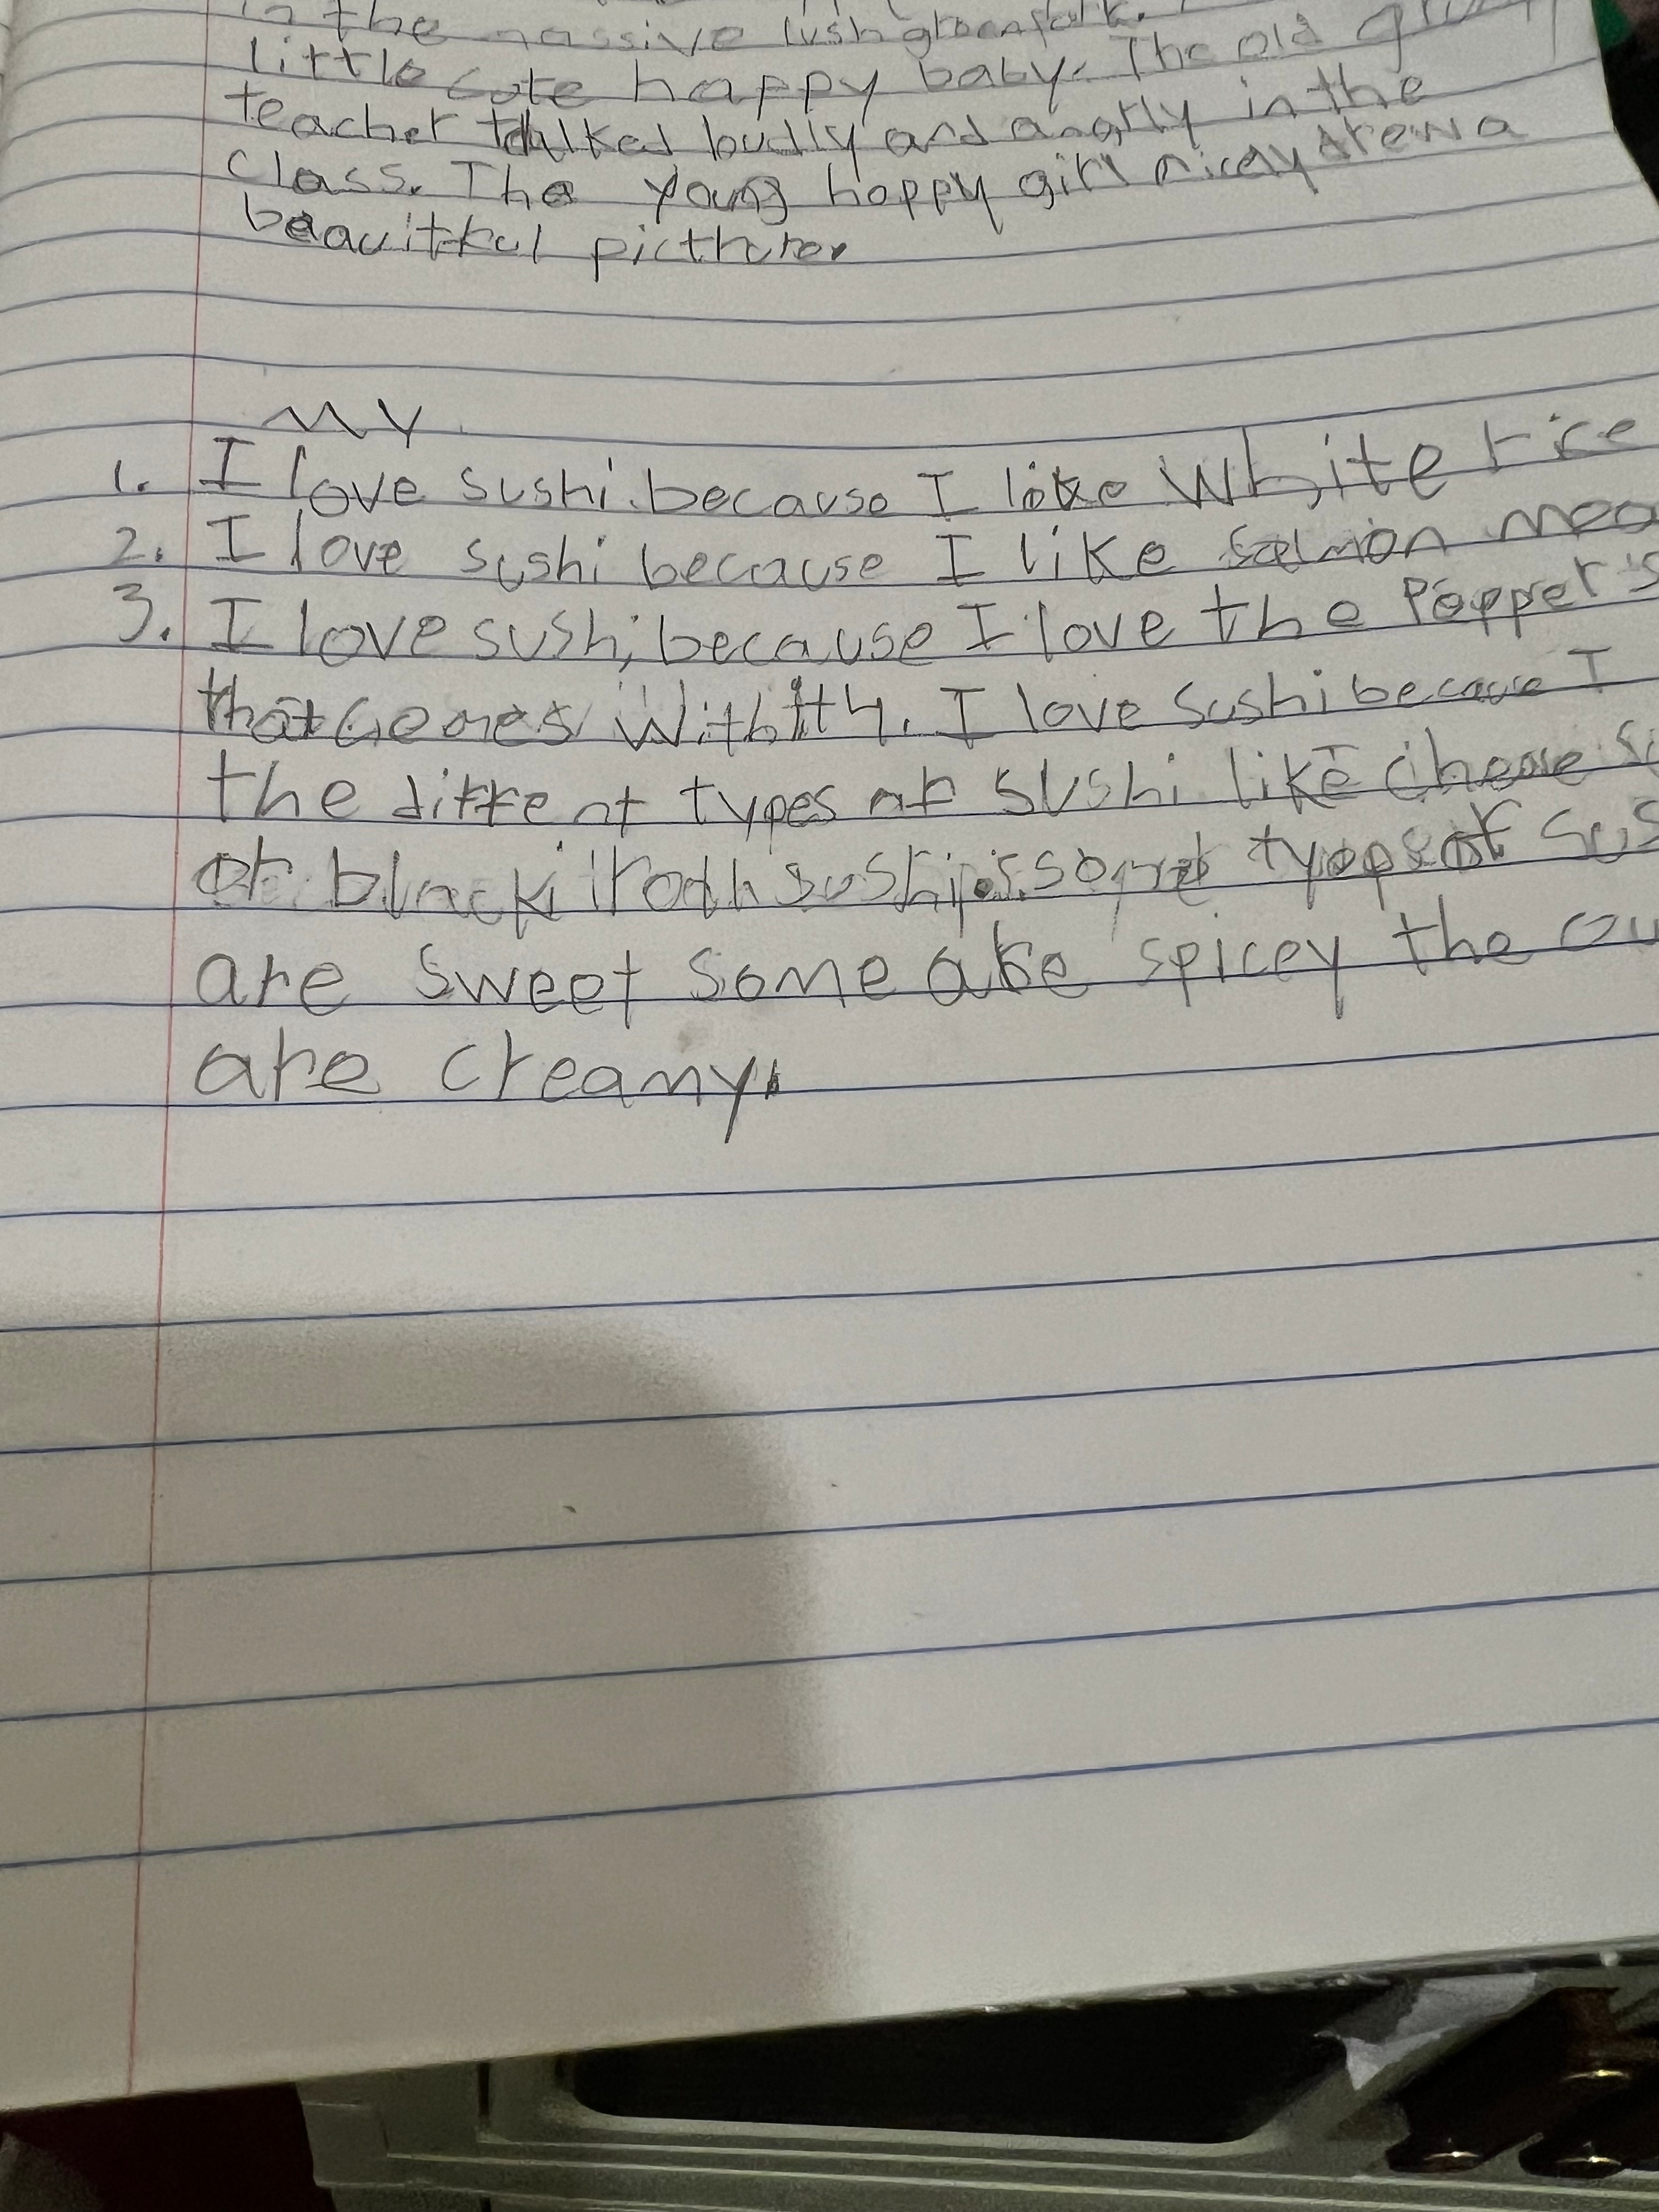 in the massive lush green park.
little cute happy baby. The old
teacher talked loudly and angrly in the
class. The young happy girl nicely drew a
beauitful picthure.
my
1. I love sushi. because I like white rice
2. I love sushi because I like salmon
3. I love sushi because I love the Pepper's
that comes with 4. I love sushi because I
the diffrent types of sushi like
or black sushi. some types of
are sweet some are spicey the
are creamy.